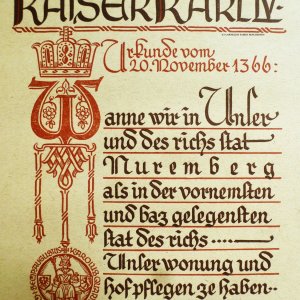 KAISER KARL IV.
Urkunde vom
20. November 1366:
Wanne wir in Unser
und des richs stat
Nuremberg
als in der vornemsten
und baz gelegensten
stat des richs ....
Unser wonung und
hof pflegen ze haben..